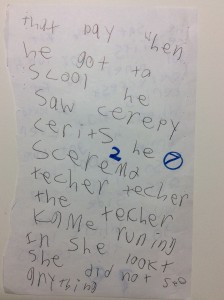 that Day when
he got ta
SLOOl he
Saw cerepy
cerits he
Scerema 2
techer techer
the techer
Kame runing
In she lookt
She did not see
any thing